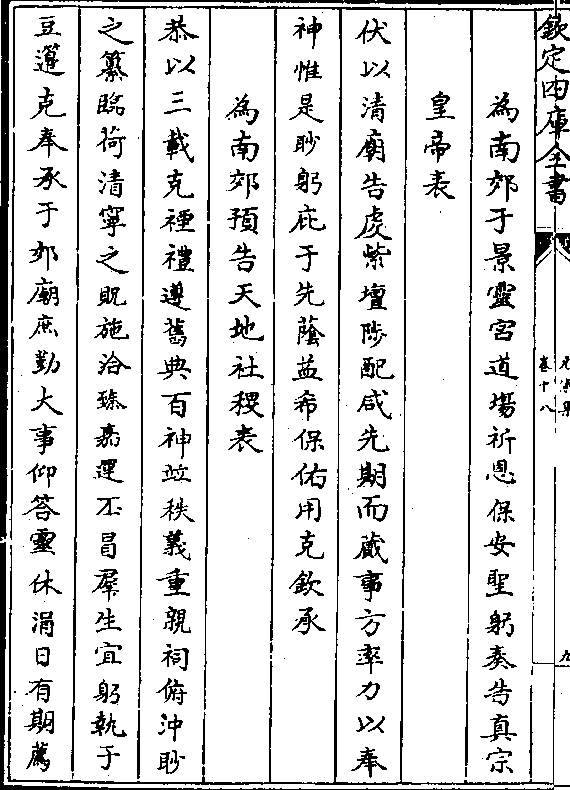 欽定四庫全書
卷十八
為南郊于景靈宮道場祈恩保安聖躬奏告真宗
皇帝表
伏以清廟告虔紫壇陟配咸先期而蕆事方率力以奉
神惟是眇躬庇于先蔭益希保佑用克欽承
為南郊預告天地社稷表
恭以三載克禋禮遵舊典百神並秩義重親祠俯沖眇
之纂臨荷清寧之貺施洽臻嘉運丕冒羣生宜躬執于
豆籩克奉承于郊廟庶勤大事仰答靈休涓日有期薦